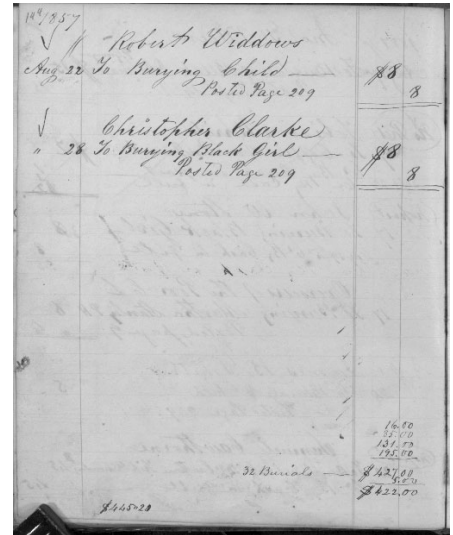 1857
Robert Widdows
Aug 22 To Burying Child — $8
Posted Page 209 8
Christopher Clarke
" 28 To Burying Black Girl — $8
Posted Page 209 8
16.00
131.00
195.00
32 Burials — $427.00
5.00
$422.00
$445.20